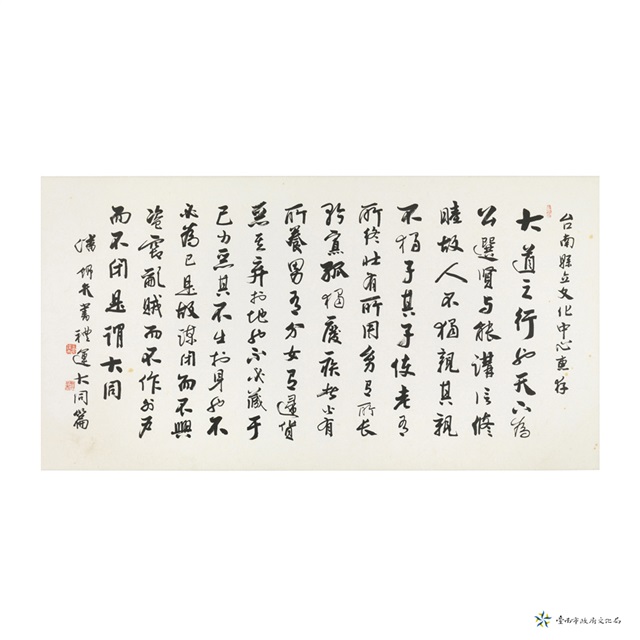 台南縣立文化中心惠存
大道之行也天下為
公選賢与能講信修
睦故人不獨親其親
不獨子其子使老有
所終壯有所用幼有所長
矜寡孤獨廢疾者皆有
所養男有分女有歸貨
惡其棄於地也不必藏于
己力惡其不出於身也不
必為己是故謀閉而不興
盜竊亂賊而不作外戶
而不閉是謂大同
潘 書禮運大同篇
臺南市政府文化局